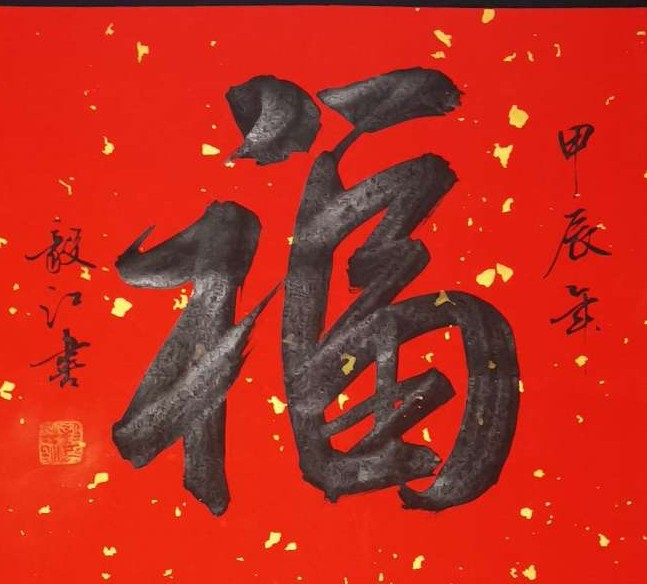 甲辰年
福
毅江書